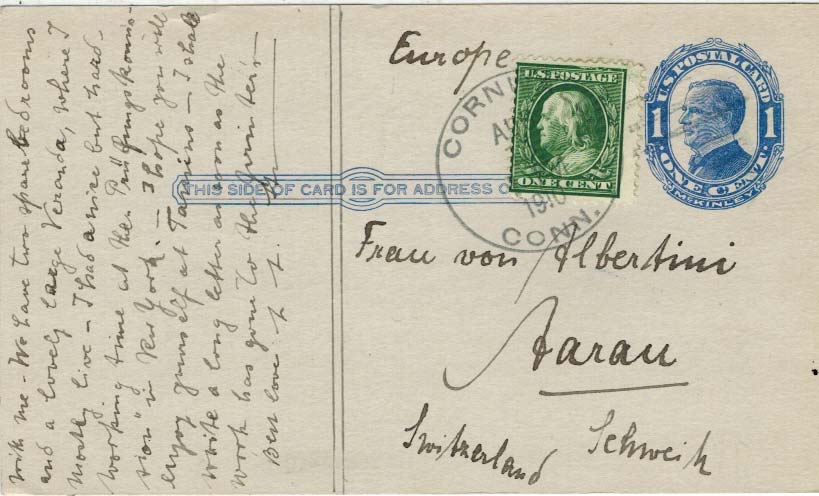 with me - We have two spare bedrooms
and a lovely large Veranda, where I
mostly live - I had a nice but hard-
working time at the "Prüfungskommis-
sion" in New York. - I hope you will
enjoy yourself at Tamins - I shall
write a long letter as soon as the
work has gone to the
Best love.
Europe
U.S. POSTAGE
ONE CENT
CORN
1910
CONN.
U.S. POSTAL CARD
1 1
ONE CENT
McKINLEY
THIS SIDE OF CARD IS FOR ADDRESS O
Frau von Albertini
Aarau
Schweiz
Switzerland